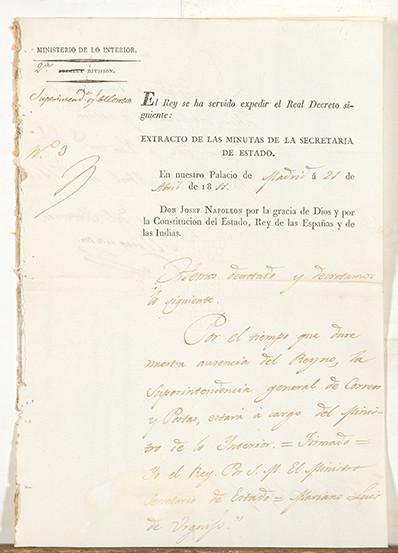 MINISTERIO DE LO INTERIOR.
2.ª
DIVISION.
N.º 3
El Rey se ha servido expedir el Real Decreto si-
guiente:
EXTRACTO DE LAS MINUTAS DE LA SECRETARIA
DE ESTADO.
En nuestro Palacio de Madrid á 21 de
Abril de 1811.
DON JOSEF NAPOLEON por la gracia de Dios y por
la Constitucion del Estado, Rey de las Españas y de
las Indias.
Hemos decretado y decretamos
lo siguiente.
Por el tiempo que dure
nuestra ausencia del Reyno, la
Superintendencia general de Correos
y Postas, estará á cargo del Minis-
tro de lo Interior. = Firmado =
Yo el Rey. Por S. M. El Ministro
Secretario de Estado = Mariano Luis
de Urquijo."